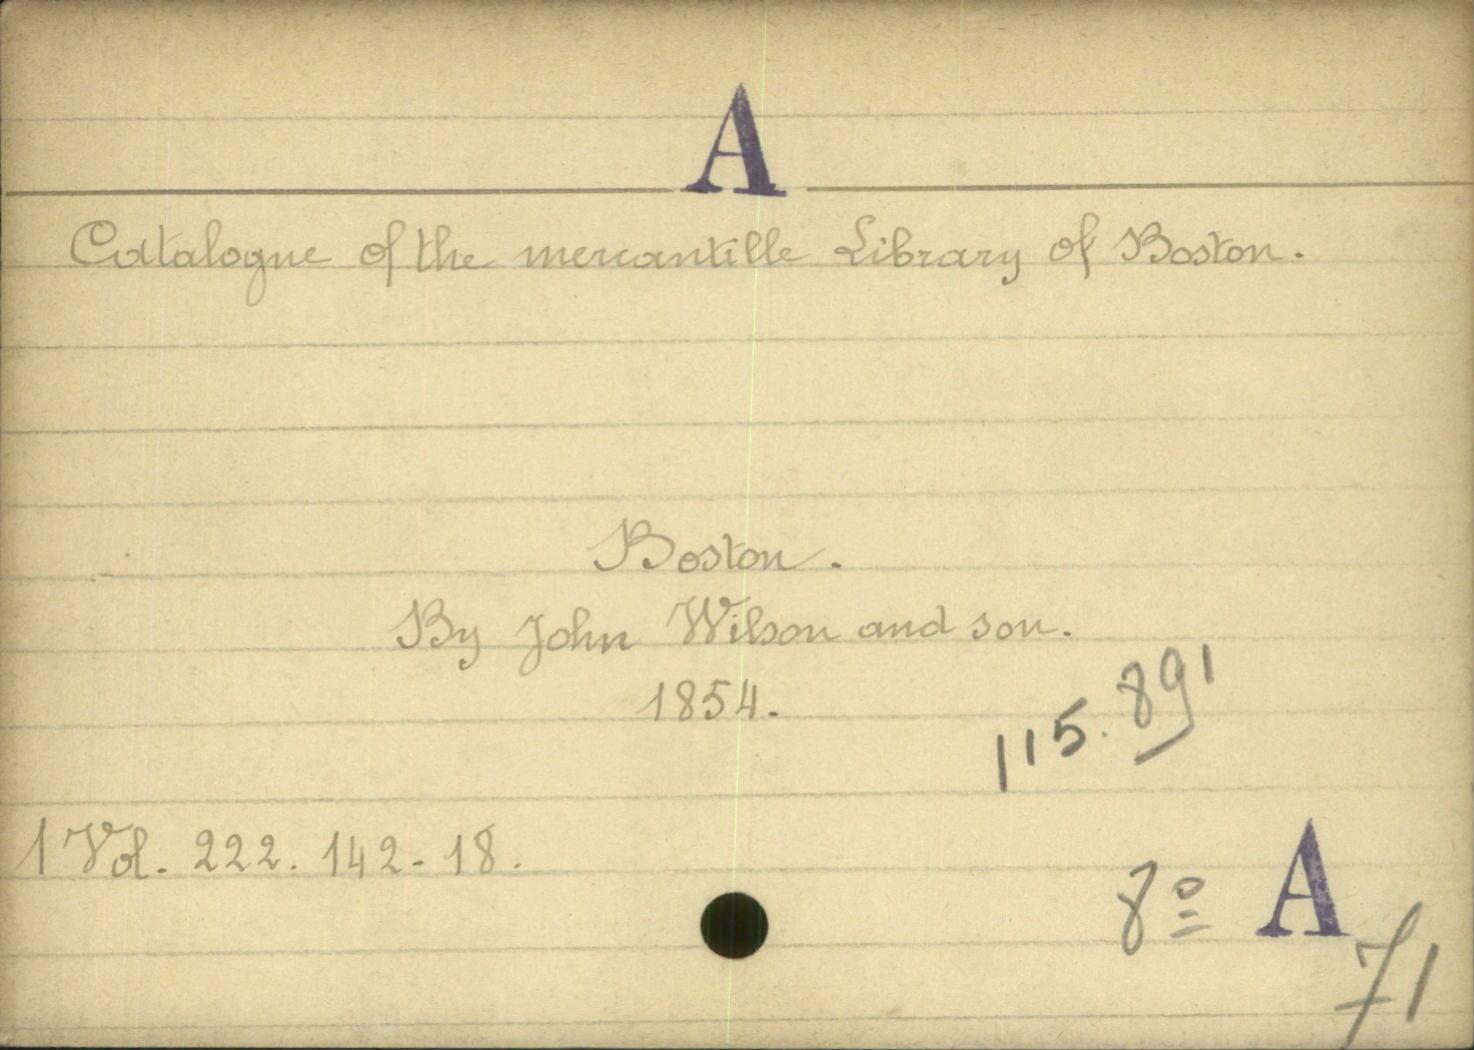 A
Catalogue of the mercantille Library of Boston.
Boston.
By John Wilson and son.
1854.
115.891
1 Vol. 222. 142-18.
8º A
71